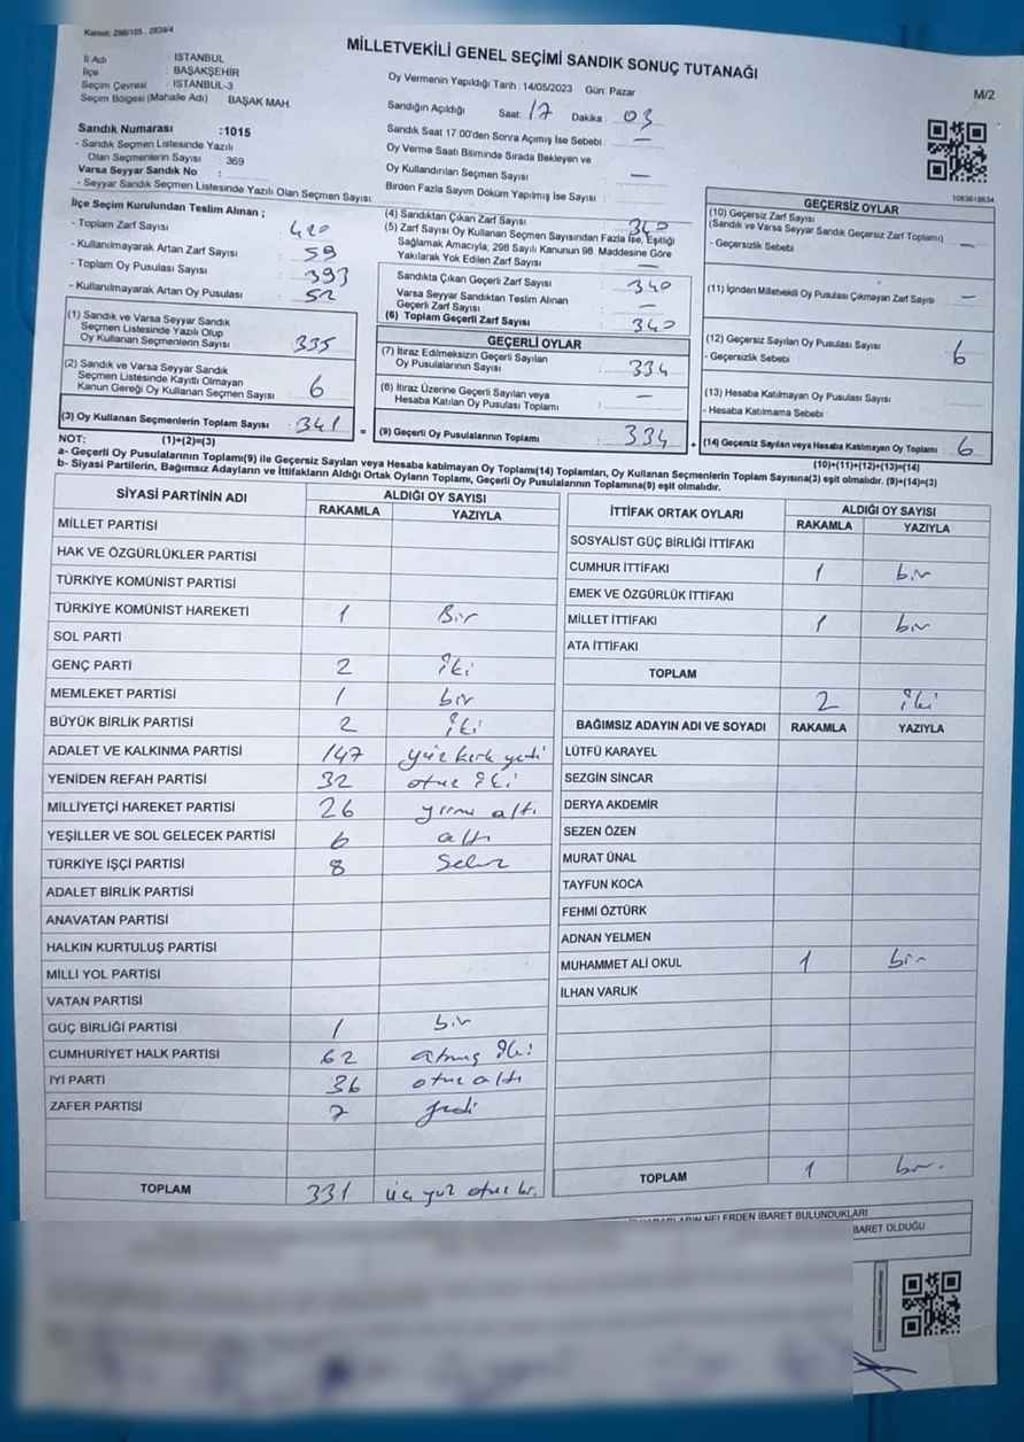 Kanun: 298/105 - 2839/4
MİLLETVEKİLİ GENEL SEÇİMİ SANDIK SONUÇ TUTANAĞI
M/2
İl Adı : İSTANBUL
İlçe : BAŞAKŞEHİR
Seçim Çevresi : İSTANBUL-3
Seçim Bölgesi (Mahalle Adı) BAŞAK MAH.
Oy Vermenin Yapıldığı Tarih : 14/05/2023 Gün: Pazar
Sandığın Açıldığı Saat: 17 Dakika : 03
Sandık Saat 17.00'den Sonra Açımış İse Sebebi : —
Oy Verme Saati Bitiminde Sırada Bekleyen ve
Oy Kullandırılan Seçmen Sayısı : —
Birden Fazla Sayım Döküm Yapılmış İse Sayısı :
Sandık Numarası :1015
- Sandık Seçmen Listesinde Yazılı
Olan Seçmenlerin Sayısı : 369
Varsa Seyyar Sandık No :
- Seyyar Sandık Seçmen Listesinde Yazılı Olan Seçmen Sayısı
İlçe Seçim Kurulundan Teslim Alınan ;
- Toplam Zarf Sayısı : 420
- Kullanılmayarak Artan Zarf Sayısı : 59
- Toplam Oy Pusulası Sayısı : 393
- Kullanılmayarak Artan Oy Pusulası : 52
(1) Sandık ve Varsa Seyyar Sandık
Seçmen Listesinde Yazılı Olup
Oy Kullanan Seçmenlerin Sayısı : 335
(2) Sandık ve Varsa Seyyar Sandık
Seçmen Listesinde Kayıtlı Olmayan
Kanun Gereği Oy Kullanan Seçmen Sayısı : 6
(3) Oy Kullanan Seçmenlerin Toplam Sayısı : 341
(4) Sandıktan Çıkan Zarf Sayısı : 340
(5) Zarf Sayısı Oy Kullanan Seçmen Sayısından Fazla İse, Eşitliği
Sağlamak Amacıyla, 298 Sayılı Kanunun 98. Maddesine Göre
Yakılarak Yok Edilen Zarf Sayısı : —
Sandıkta Çıkan Geçerli Zarf Sayısı : 340
Varsa Seyyar Sandıktan Teslim Alınan
Geçerli Zarf Sayısı : —
(6) Toplam Geçerli Zarf Sayısı : 340
GEÇERLİ OYLAR
(7) İtiraz Edilmeksizin Geçerli Sayılan
Oy Pusulalarının Sayısı : 334
(8) İtiraz Üzerine Geçerli Sayılan veya
Hesaba Katılan Oy Pusulası Toplamı : —
= (9) Geçerli Oy Pusulalarının Toplamı : 334
GEÇERSİZ OYLAR
(10) Geçersiz Zarf Sayısı
(Sandık ve Varsa Seyyar Sandık Geçersiz Zarf Toplamı) : —
- Geçersizlik Sebebi
(11) İçinden Milletvekili Oy Pusulası Çıkmayan Zarf Sayısı : —
(12) Geçersiz Sayılan Oy Pusulası Sayısı : 6
- Geçersizlik Sebebi
(13) Hesaba Katılmayan Oy Pusulası Sayısı
- Hesaba Katılmama Sebebi
+ (14) Geçersiz Sayılan veya Hesaba Katılmayan Oy Toplamı : 6
NOT: (1)+(2)=(3) (10)+(11)+(12)+(13)=(14)
a- Geçerli Oy Pusulalarının Toplamı(9) ile Geçersiz Sayılan veya Hesaba katılmayan Oy Toplamı(14) Toplamları, Oy Kullanan Seçmenlerin Toplam Sayısına(3) eşit olmalıdır. (9)+(14)=(3)
b- Siyasi Partilerin, Bağımsız Adayların ve İttifakların Aldığı Ortak Oyların Toplamı, Geçerli Oy Pusulalarının Toplamına(9) eşit olmalıdır.
SİYASİ PARTİNİN ADI ALDIĞI OY SAYISI
RAKAMLA YAZIYLA
MİLLET PARTİSİ
HAK VE ÖZGÜRLÜKLER PARTİSİ
TÜRKİYE KOMÜNİST PARTİSİ
TÜRKİYE KOMÜNİST HAREKETİ 1 Bir
SOL PARTİ
GENÇ PARTİ 2 İki
MEMLEKET PARTİSİ 1 bir
BÜYÜK BİRLİK PARTİSİ 2 İki
ADALET VE KALKINMA PARTİSİ 147 yüz kırk yedi
YENİDEN REFAH PARTİSİ 32 otuz iki
MİLLİYETÇİ HAREKET PARTİSİ 26 yirmi altı
YEŞİLLER VE SOL GELECEK PARTİSİ 6 altı
TÜRKİYE İŞÇİ PARTİSİ 8 Sekiz
ADALET BİRLİK PARTİSİ
ANAVATAN PARTİSİ
HALKIN KURTULUŞ PARTİSİ
MİLLİ YOL PARTİSİ
VATAN PARTİSİ
GÜÇ BİRLİĞİ PARTİSİ 1 bir
CUMHURİYET HALK PARTİSİ 62 atmış iki
İYİ PARTİ 36 otuz altı
ZAFER PARTİSİ 7 yedi
TOPLAM 331 üç yüz otuz bir
İTTİFAK ORTAK OYLARI ALDIĞI OY SAYISI
RAKAMLA YAZIYLA
SOSYALİST GÜÇ BİRLİĞİ İTTİFAKI
CUMHUR İTTİFAKI 1 bir
EMEK VE ÖZGÜRLÜK İTTİFAKI
MİLLET İTTİFAKI 1 bir
ATA İTTİFAKI
TOPLAM
2 iki
BAĞIMSIZ ADAYIN ADI VE SOYADI RAKAMLA YAZIYLA
LÜTFÜ KARAYEL
SEZGİN SİNCAR
DERYA AKDEMİR
SEZEN ÖZEN
MURAT ÜNAL
TAYFUN KOCA
FEHMİ ÖZTÜRK
ADNAN YELMEN
MUHAMMET ALİ OKUL 1 bir
İLHAN VARLIK
TOPLAM 1 bir
NELERDEN İBARET BULUNDUKLARI
İBARET OLDUĞU